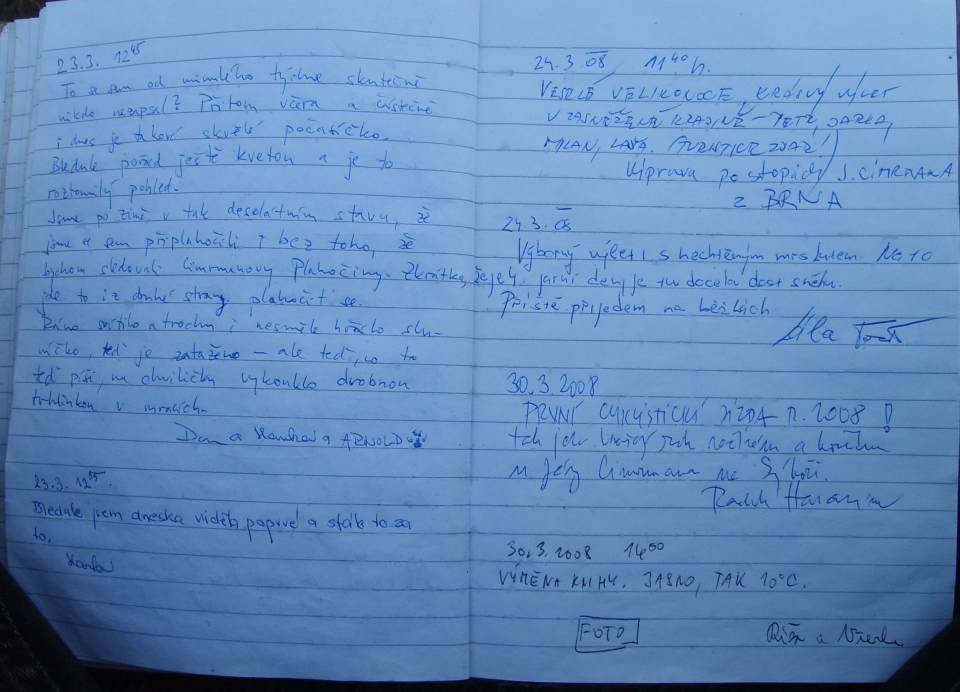 23.3. 12⁴⁵
To se sem od minulého týdne skutečně
nikdo nezapsal? Přitom včera a částečně
i dnes je takové skvělé počasíčko.
Bledule pořád ještě kvetou a je to
roztomilý pohled.
Jsme po zimě v tak desolátním stavu, že
jsme se sem připlahočili i bez toho, že
bychom sledovali Cimrmanovy plahočiny. Zkrátka,
jde to i z druhé strany plahočit se.
Ráno svítilo a trochu i nesměle hřálo slu-
níčko, teď je zataženo – ale teď, co to
teď píši, na chviličku vykouklo drobnou
trhlinkou v mracích.
Dan a Hanka a ARNOLD
23.3. 12⁵⁵.
Bledule jsem dneska viděla poprvé a stálo to za
to.
Hanka
24.3.08 11⁴⁰h.
VESELÉ VELIKONOCE, KRÁSNÝ VÝLET
V ZASNĚŽENÉ KRAJINĚ – PETR, JARKA,
MILAN,
Výprava po stopách J. CIMRMANA
z BRNA
24.3.08
Výborný výlet i s nechtěným mrskutem. Na to
že je 4. jarní den, je tu docela dost sněhu.
Příště přijedem na běžkách.
30.3.2008
PRVNÍ CYKLISTICKÁ JÍZDA R. 2008!
tak jako každý rok
u Cimrmana na
Radek
30.3.2008 14⁵⁰
VÝMĚNA KNIHY. JASNO, TAK 10°C.
FOTO